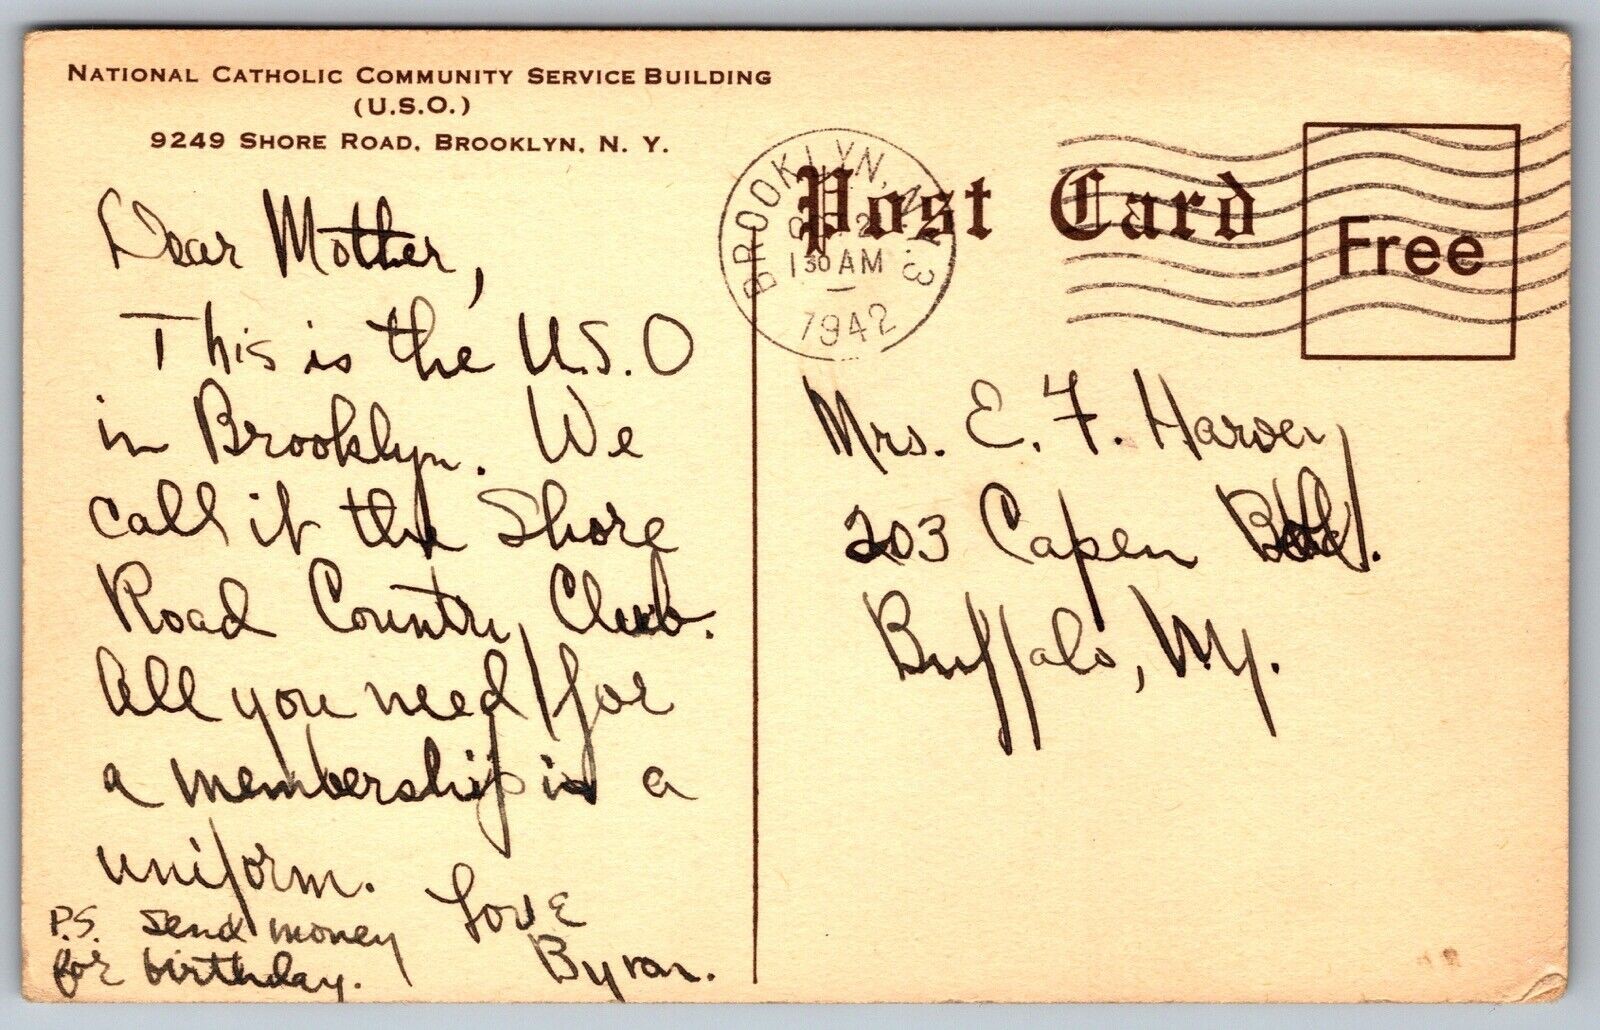 NATIONAL CATHOLIC COMMUNITY SERVICE BUILDING
(U.S.O.)
9249 SHORE ROAD, BROOKLYN, N. Y.
Dear Mother,
This is the U.S.O
in Brooklyn. We
call it the Shore
Road Country Club.
All you need for
a membership is a
uniform.
Love
Byron.
P.S. send money
for birthday.
Post Card
BROOKLYN, N.Y. 3
1 30 AM
1942
Free
Mrs. E. F. Harvey
203 Capen Blvd.
Buffalo, N.Y.